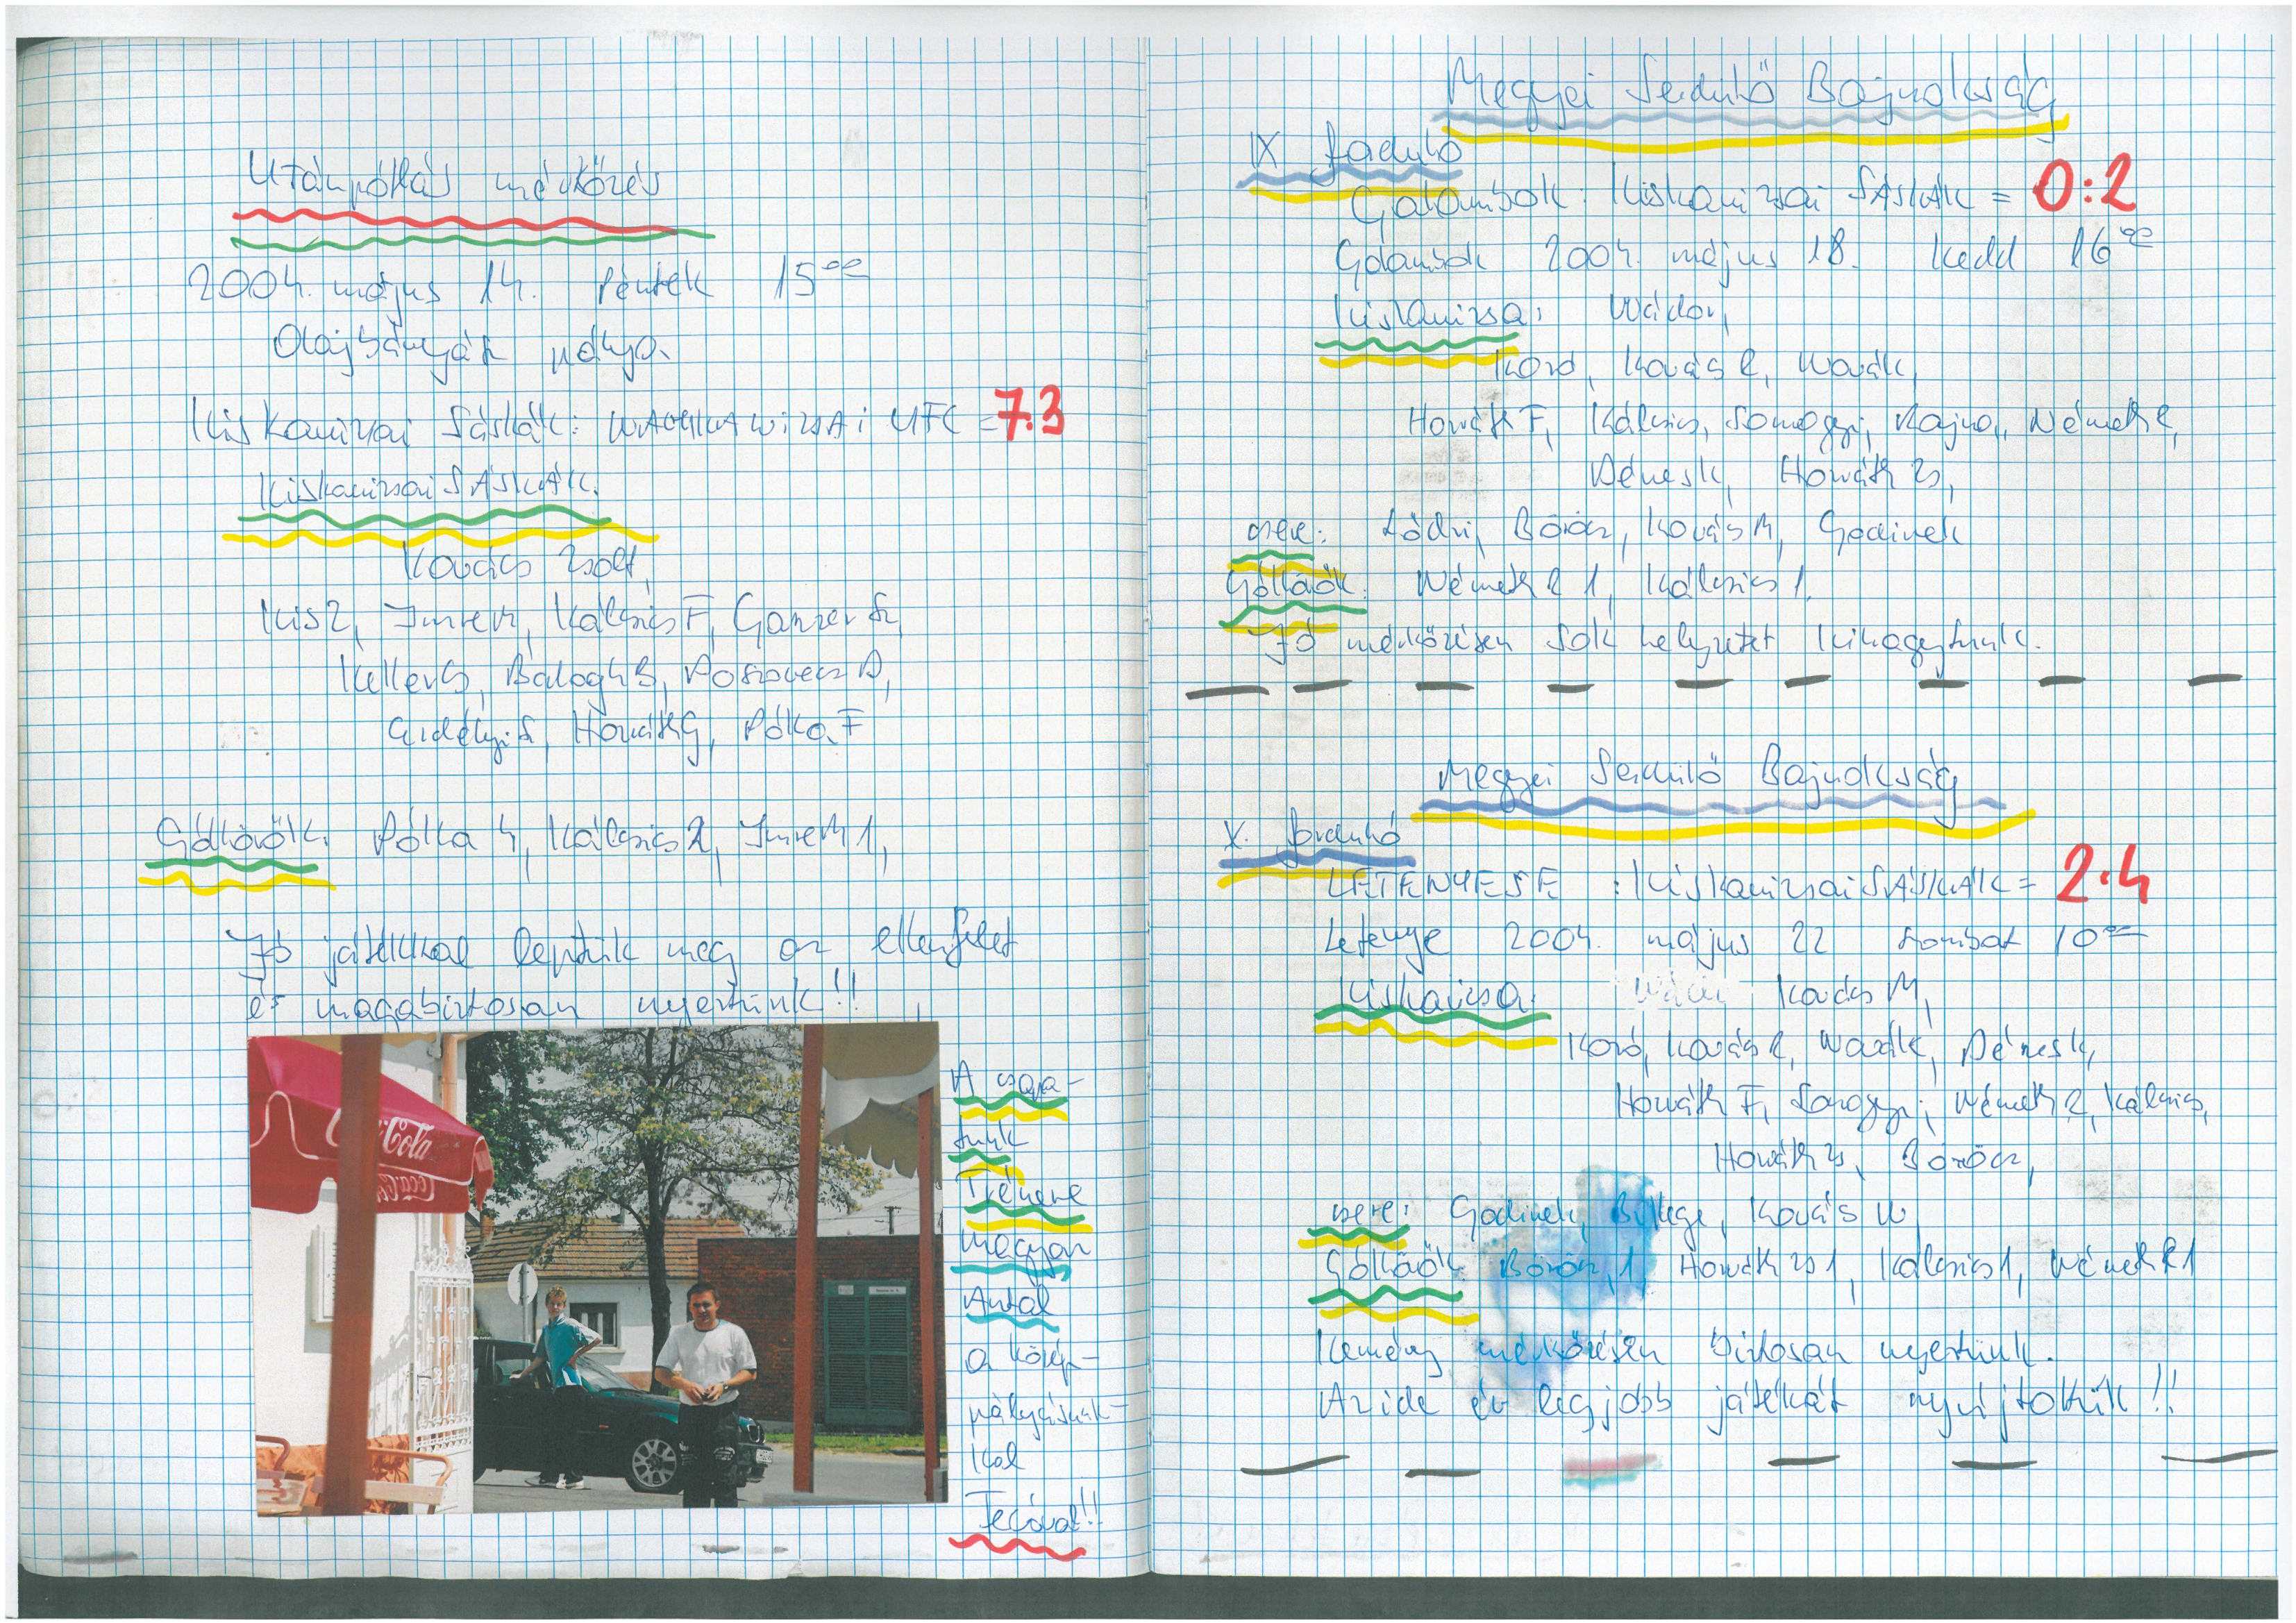 Utánpótlás mérkőzés
2004. május 14. Péntek 15⁰⁰
Olajbányász pálya.
Kiskanizsai Sáskák: NAGYKANIZSAI UFC = 7:3
Kiskanizsai SÁSKÁK.
Kovács Zsolt,
Kis Z, Imre M, Kálcsics F, Ganzer S,
Keller G, Balogh B, Poszovecz D,
Erdélyi S, Horváth G, Pólka F
Góllövők: Pólka 4, Kálcsics 2, Imre M 1,
Jó játékkal leptük meg az ellenfelet
és magabiztosan nyertünk!!
Coca-Cola
A csapa-
tunk
Trénere
Magyar
Antal
a közép-
pályásunk-
kal
Tecóval!!
Megyei Serdülő Bajnokság
IX forduló
Galambok: Kiskanizsai SÁSKÁK = 0:2
Galambok 2004. május 18. Kedd 16⁰⁰
Kiskanizsa: Nádor,
Koró, Kovács R, Novák,
Horváth F, Kálcsics, Somogyi, Kajna, Németh R,
Dénes K, Horváth Zs,
csere: Ládri, Böröcz, Kovács M, Godinek
Góllövők: Németh R 1, Kálcsics 1.
Jó mérkőzésen sok helyzetet kihagytunk.
Megyei Serdülő Bajnokság
X. forduló
LETENYE SE : Kiskanizsai SÁSKÁK = 2:4
Letenye 2004. május 22 szombat 10⁰⁰
Kiskanizsa: Kovács M,
Koró, Kovács R, Novák, Dénes K,
Horváth F, Somogyi, Németh R, Kálcsics,
Horváth Zs, Böröcz,
csere: Godinek, Bilege, Kovács N
Góllövők: Böröcz 1, Horváth Zs 1, Kálcsics 1, Németh R 1
Kemény mérkőzésen biztosan nyertünk.
Az ide év legjobb játékát nyújtottuk!!